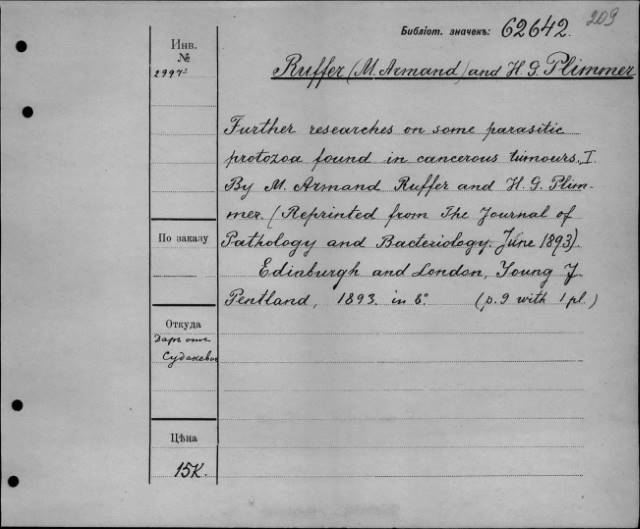 Библіот. значекъ: 62642. 209
Инв.
№
Ruffer (M. Armand) and H. G. Plimmer
Further researches on some parasitic
protozoa found in cancerous tumours, I.
By M. Armand Ruffer and H. G. Plim-
mer. (Reprinted from The Journal of
По заказу
Pathology and Bacteriology June 1893).
Edinburgh and London, Young J.
Pentland, 1893. in 8°. (p. 9 with 1 pl.)
Откуда
Даръ отъ
Судакевич
Цѣна
15к.